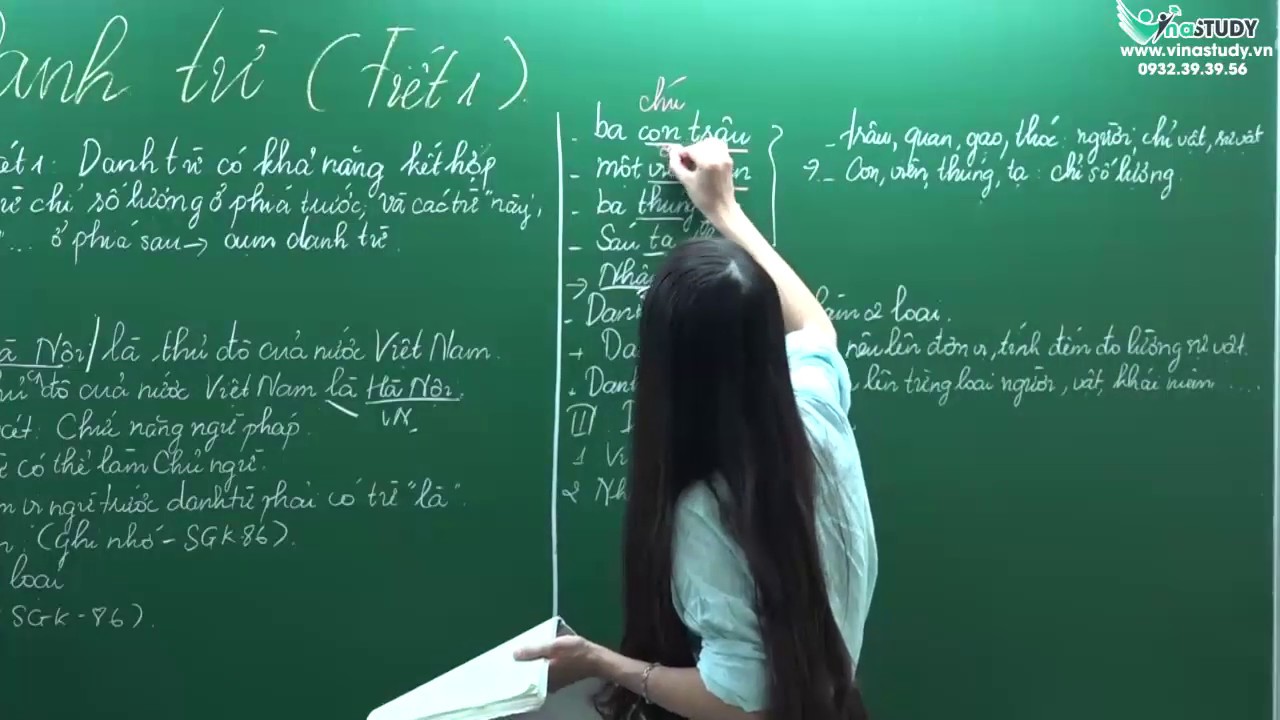 Danh từ (Tiết 1).
xét 1: Danh từ có khả năng kết hợp
từ chỉ số lượng ở phía trước, và các từ "này",
... ở phía sau → cụm danh từ.
Hà Nội / là thủ đô của nước Việt Nam.
thủ đô của nước Việt Nam là Hà Nội.
VN
xét: Chức năng ngữ pháp.
từ có thể làm Chủ ngữ.
làm vị ngữ trước danh từ phải có từ "là".
(Ghi nhớ - SGK-86).
loại
SGK-86).
chú
- ba con trâu
- một
- ba thúng
- Sáu tạ
→ Nhận
- Danh
+ Da
+ Danh
II.
1
2 Nh
- trâu, quan, gạo, thóc: người, chỉ vật, sự vật
?- Con, viên, thúng, tạ: chỉ số lượng.
làm 2 loại.
nêu lên đơn vị, tính đếm đo lường sự vật.
lên từng loại người, vật, khái niệm ....
VinaSTUDY
www.vinastudy.vn
0932.39.39.56